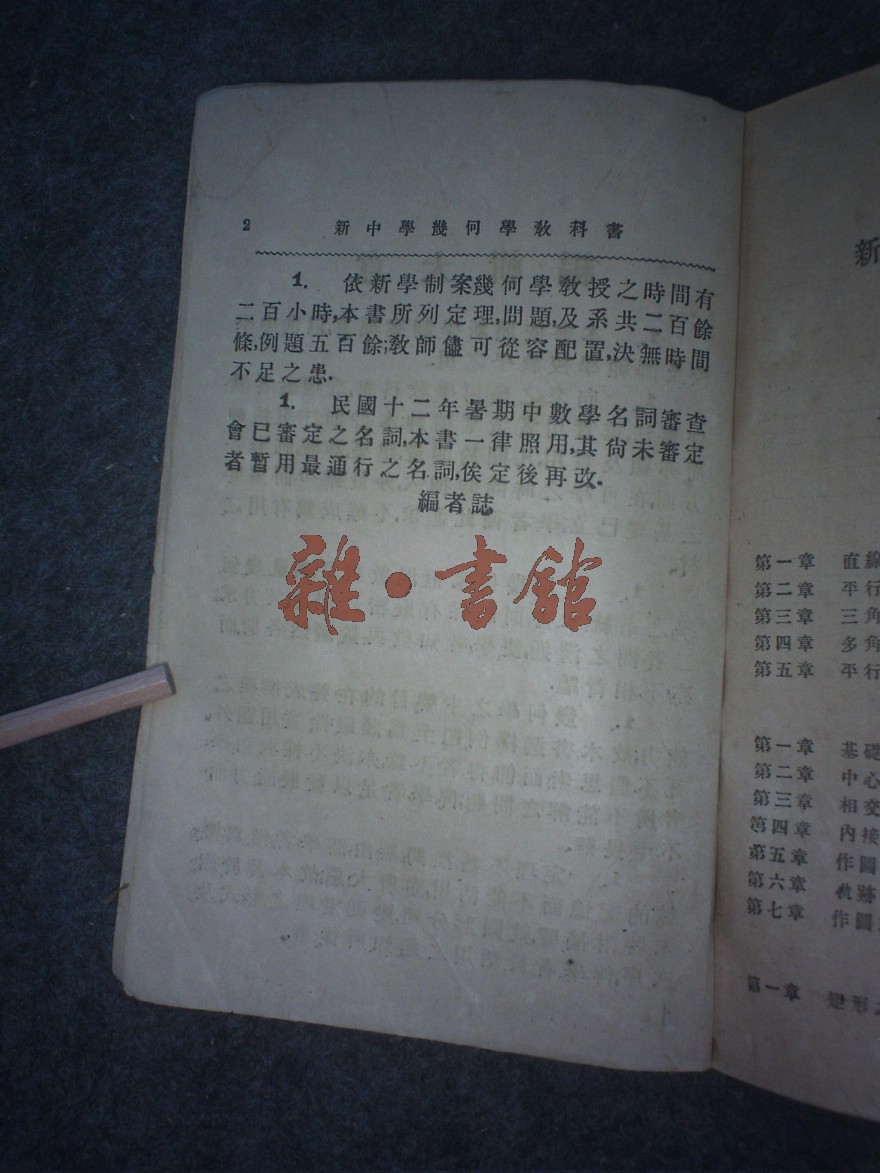 2 新中學幾何學教科書
1. 依新學制案幾何學教授之時間有
二百小時,本書所列定理,問題,及系共二百餘
條,例題五百餘;教師儘可從容配置,決無時間
不足之患.
1. 民國十二年暑期中數學名詞審查
會已審定之名詞,本書一律照用,其尙未審定
者暫用最通行之名詞,俟定後再改.
編者誌
雜·書館
新
第一章 直線
第二章 平行
第三章 三角
第四章 多角
第五章 平行
第一章 基礎
第二章 中心
第三章 相交
第四章 內接
第五章 作圖
第六章 軌跡
第七章 作圖
第一章